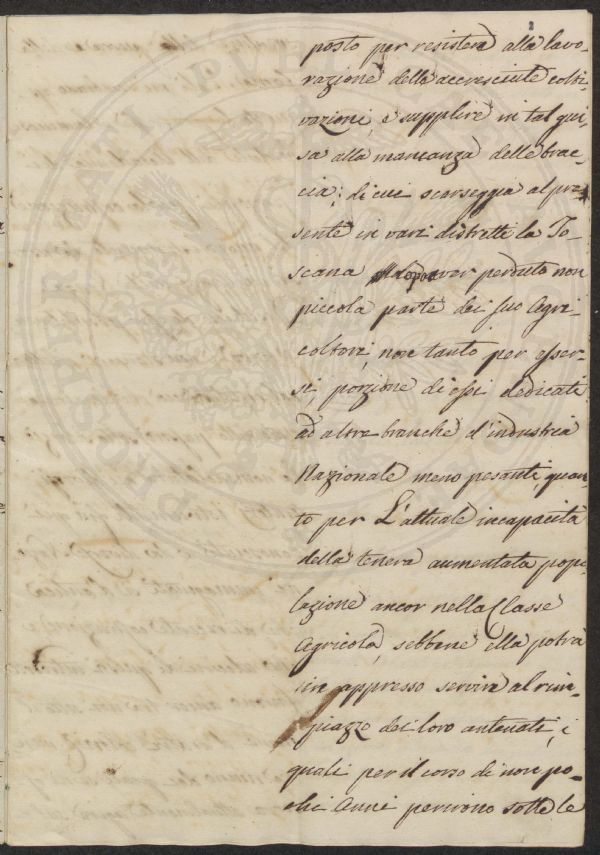 2
posto per resistere alla lavo-
razione delle accresciute colti-
vazioni, e supplire in tal gui-
sa alla mancanza delle brac-
cia; di cui scarseggia al pre-
sente in varj distretti la To-
scana dopo aver perduto non
piccola parte dei suo Agri-
coltori, non tanto per esser-
si, porzione di essi dedicati
ad altre branche d'industria
Nazionale meno pesanti, quan-
to per L'attuale incapacità
della tenera aumentata popo-
lazione ancor nella Classe
Agricola, sebbene ella potrà
in appresso servire al rim-
piazzo dei loro antenati, i
quali per il corso di non po-
chi Anni perirono sotto le